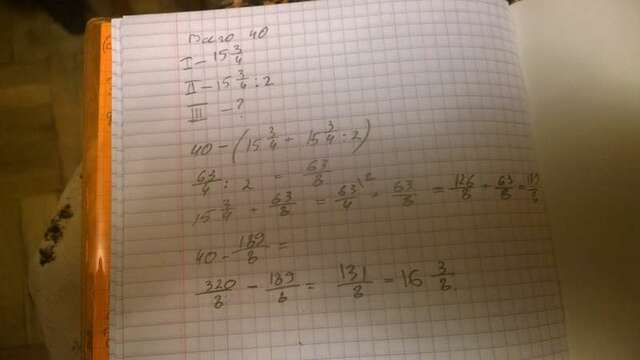 Всего 40
I - 15 3/4
II - 15 3/4 : 2
III - ?
40 - (15 3/4 + 15 3/4 : 2)
63/4 : 2 = 63/8
15 3/4 + 63/8 = 63/4 \2 + 63/8 = 126/8 + 63/8 = 189/8
40 - 189/8 =
320/8 - 189/8 = 131/8 = 16 3/8